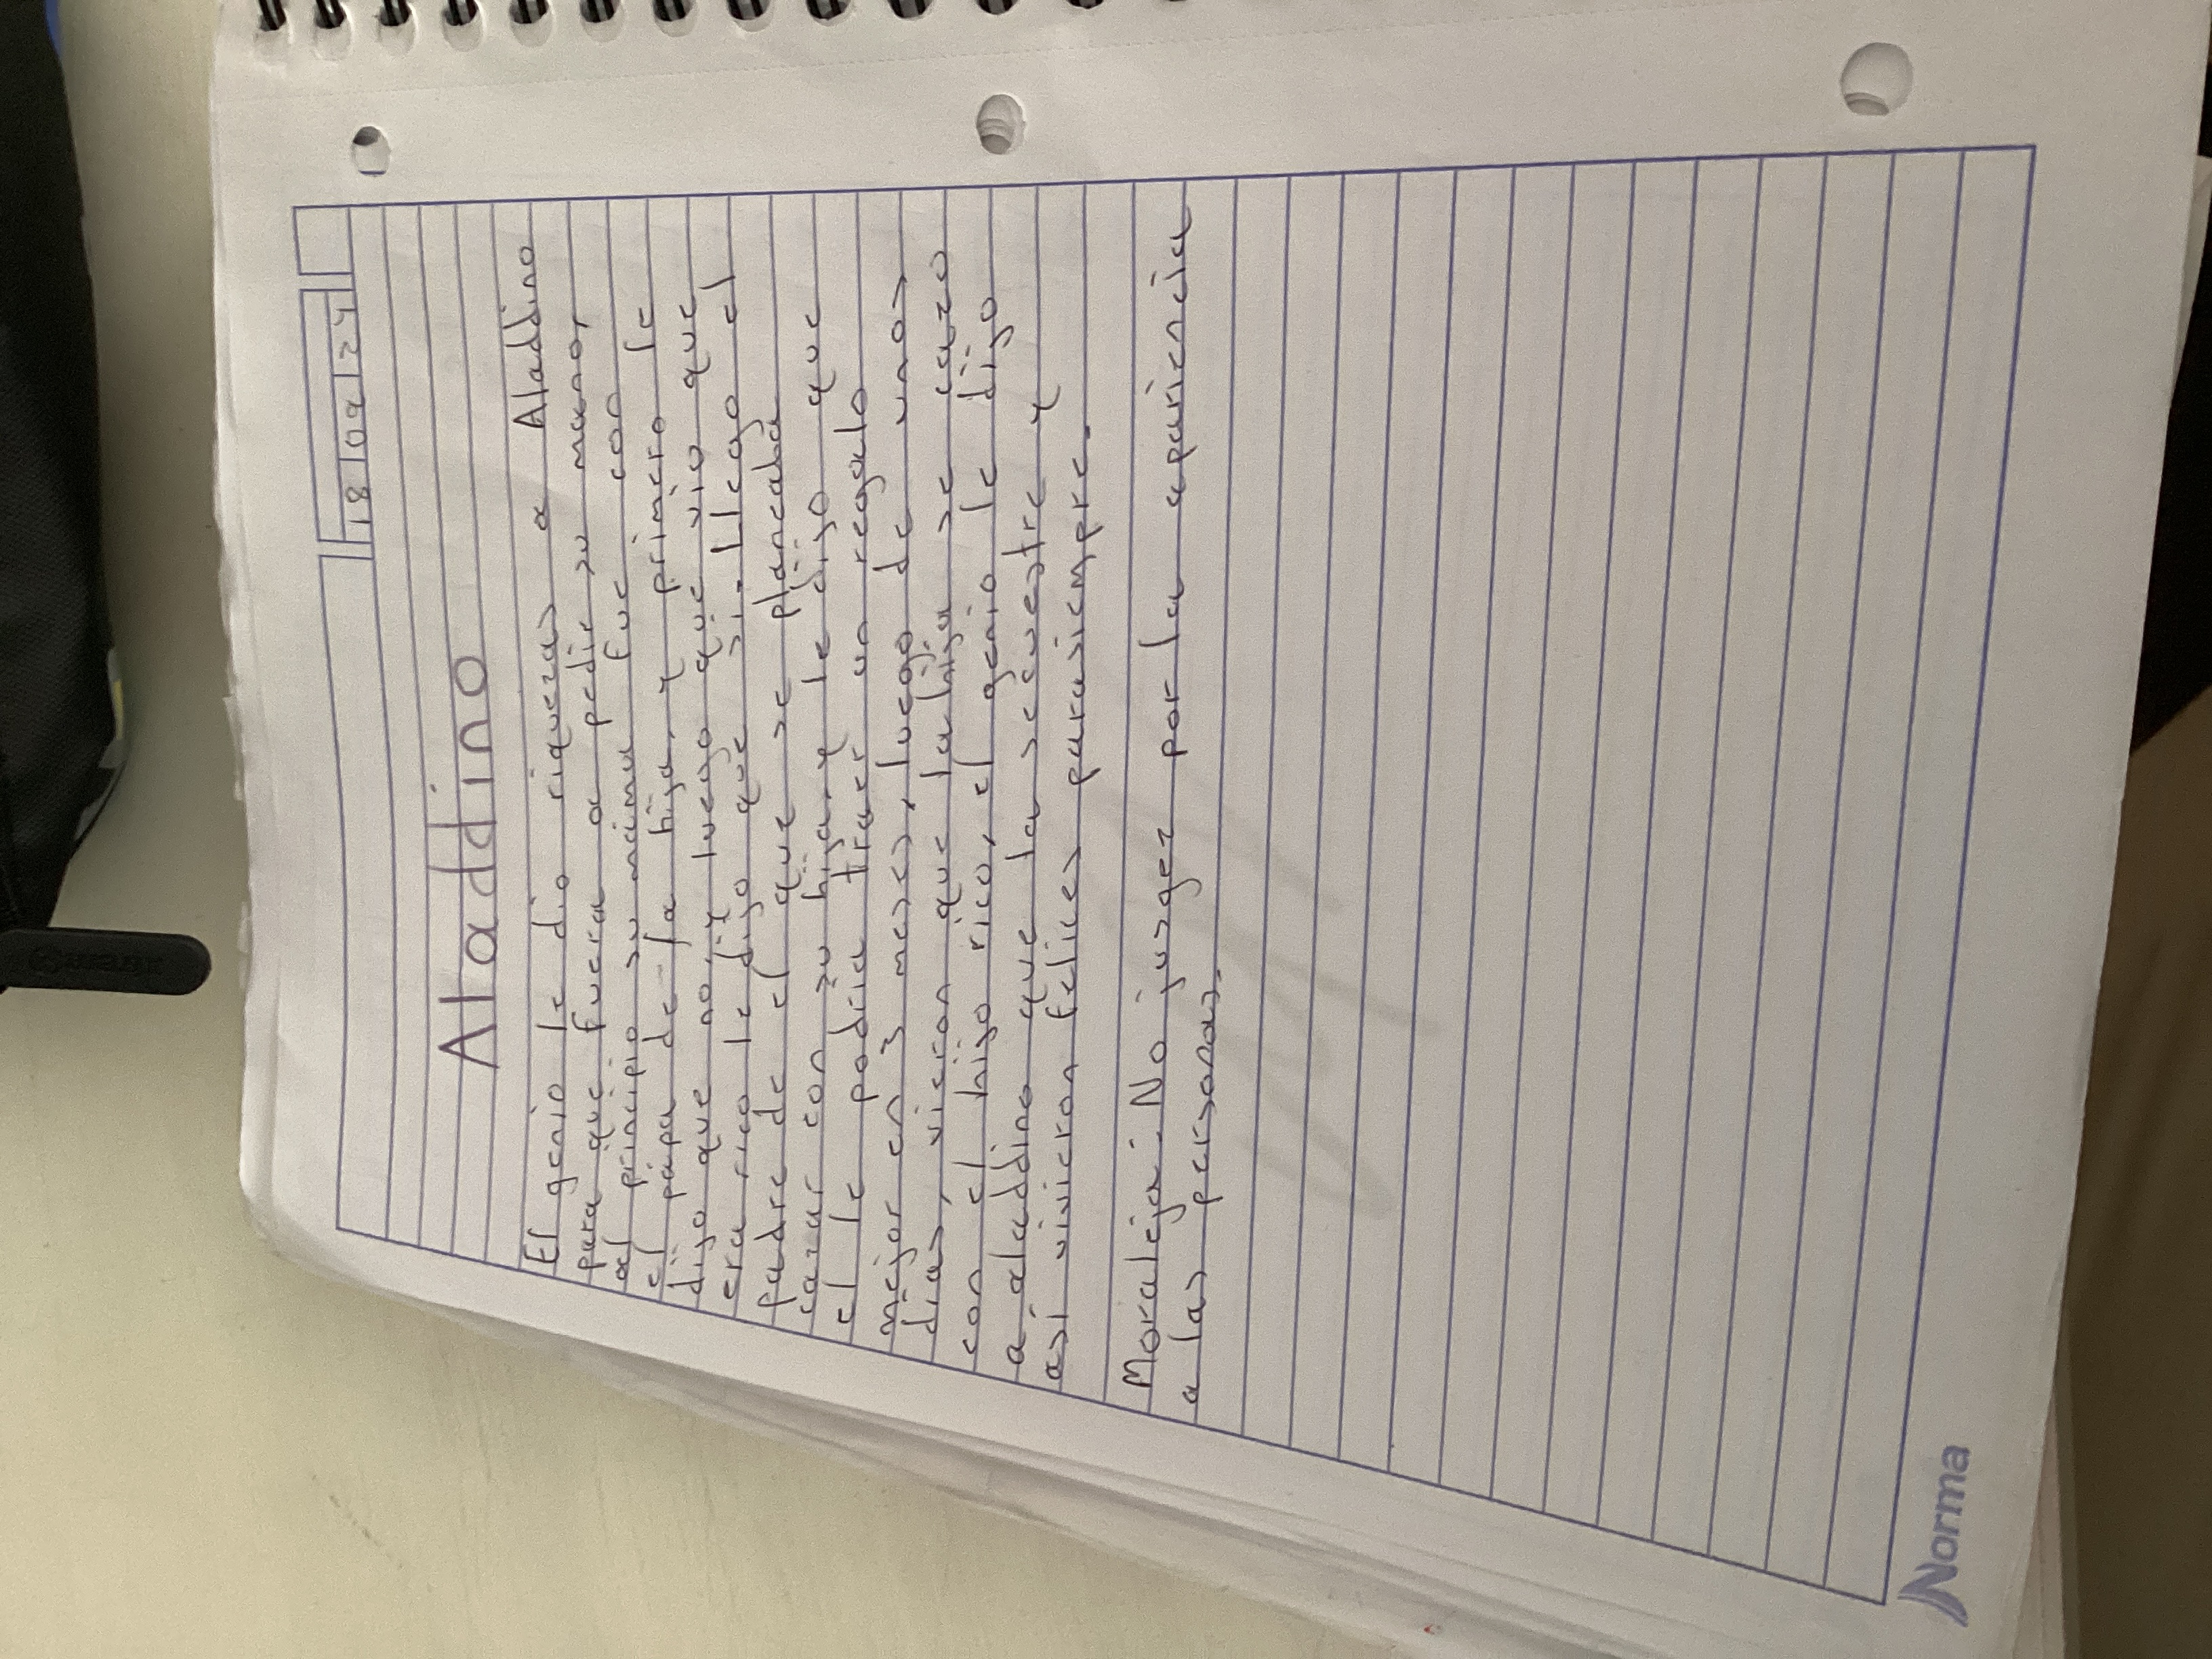 18 09 24
Aladdino
El genio le dio riquezas a Aladdino
para que fuera a pedir su mano,
al principio su mama fue con
el papa de la hija, y primero le
dijo que no, y luego que vio que
era rico le dijo que si. Llego el
padre de el que se planeaba
cazar con su hija, y le dijo que
el le podria traer un regalo
mejor en 3 meses, luego de unos
dias, vieron que la hija se cazo
con el hijo rico, el genio le dijo
a aladdino que la secuestre y
asi vivieron felices parasiempre.
Moraleja: No jusgez por la apariencia
a las personas.
Norma